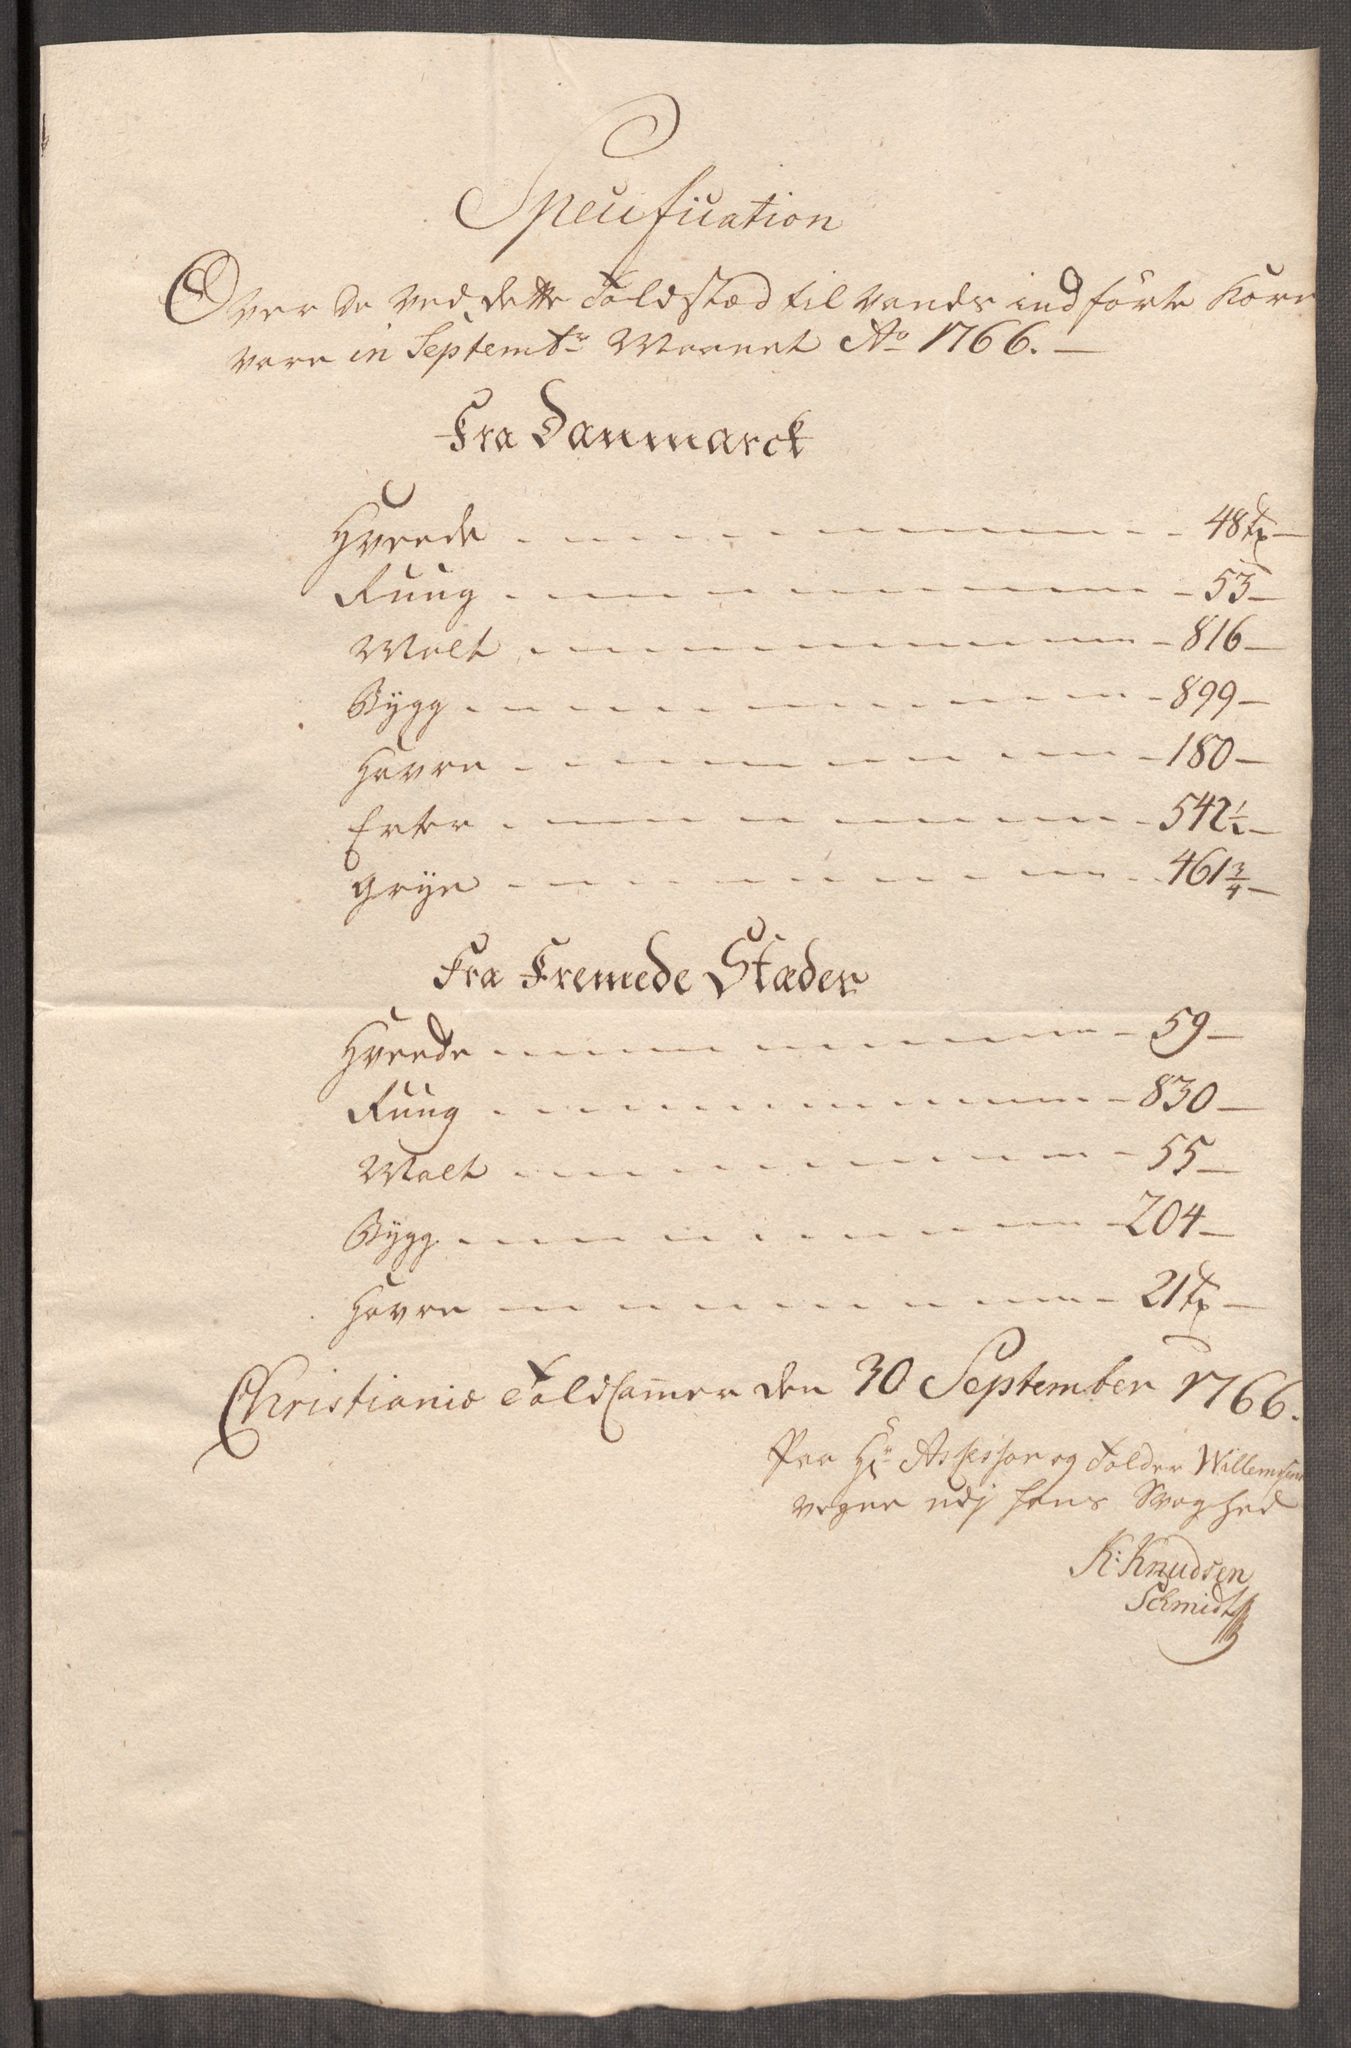 Specification
Over de ved dette Toldstæd til vands indførte Korn
vare in Septembr Maanet Ao 1766.
Fra Danmarck
Hveede 48 tr
Ruug 53
Malt 816
Bygg 899
Havre 180
Erter 542 1/2
Gryn 461 3/4
Fra Fremede Stæder
Hveede 59
Ruug 830
Malt 55
Bygg 204
Havre 21 tr
Christiania Told Camer den 30 September 1766.
Paa Hr Assessor og Tolder Willemsens
vegne udj hans Svaghed
K: Knudsen
Schmidt